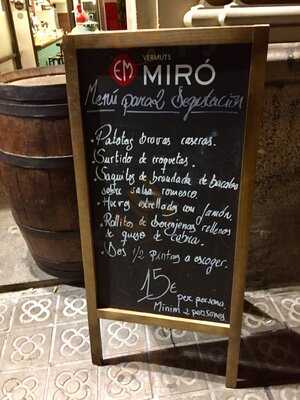 EM
VERMUTS
MIRÓ
Menú para 2 Degustación
. Patatas bravas caseras.
. Surtido de croquetas.
. Saquitos de brandada de bacalao
sobre salsa romesco.
. Huevos estrellados con jamón.
. Rollitos de berenjenas rellenos
de queso de cabra.
. Dos 1/2 pintas a escoger.
15€
per persona
Mínim 2 persones